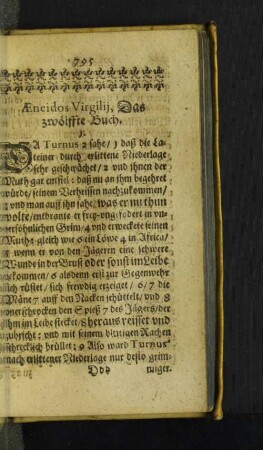 795
Æneidos Virgilij, Das
zwölffte Buch.
1.
DA Turnus 2 sahe/ 3 daß die La-
teiner durch erlittene Niederlage
sehr geschwächet/ 2 und ihnen der
Muth gar entfiel: daß nu an ihm begehret
würde/ seinem Verheissen nachzukommen/
2 und man auff ihn sahe/ was er mithun
wolte/ entbrante er frey-ungefodert in un-
versöhnlichen Grim/ 4 und erweckete seinen
Muth: gleich wie 5 ein Löwe 4 in Africa/
5 wenn er von den Jägern eine schwere
Wunde in der Brust oder sonst im Leibe
bekommen/ 6 alsdenn erst zur Gegenwehr
sich rüstet/ sich frewdig erzeiget/ 6/ 7 die
Mäne 7 auff den Nacken schüttelt/ und 8
unerschrocken den Spieß 7 des Jägers/ der
ihm im Leibe stecket/ 8 heraus reisset und
zubricht: und mit seinem blutigen Rachen
schrecklich brüllet: 9 Also ward Turnus
nach erlittener Niederlage nur desto grim-
Ddd
miger.